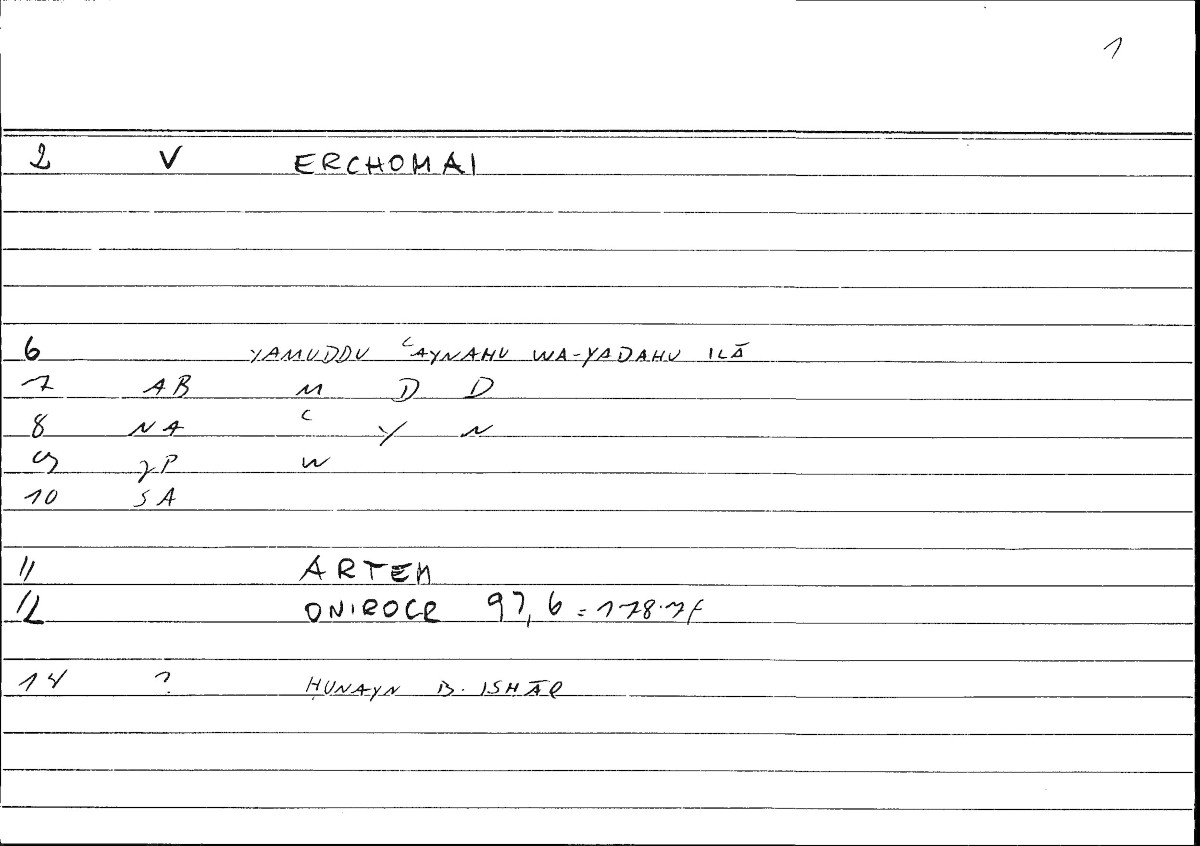 1
2 V ERCHOMAI
6 YAMUDDU ʿAYNAHU WA-YADAHU ILĀ
7 AB M D D
8 NA ʿ Y N
9 γP W
10 SA
11 ARTEM
12 ONIROCR 97,6 = 178.7f
14 ? ḤUNAYN B. ISḤĀQ